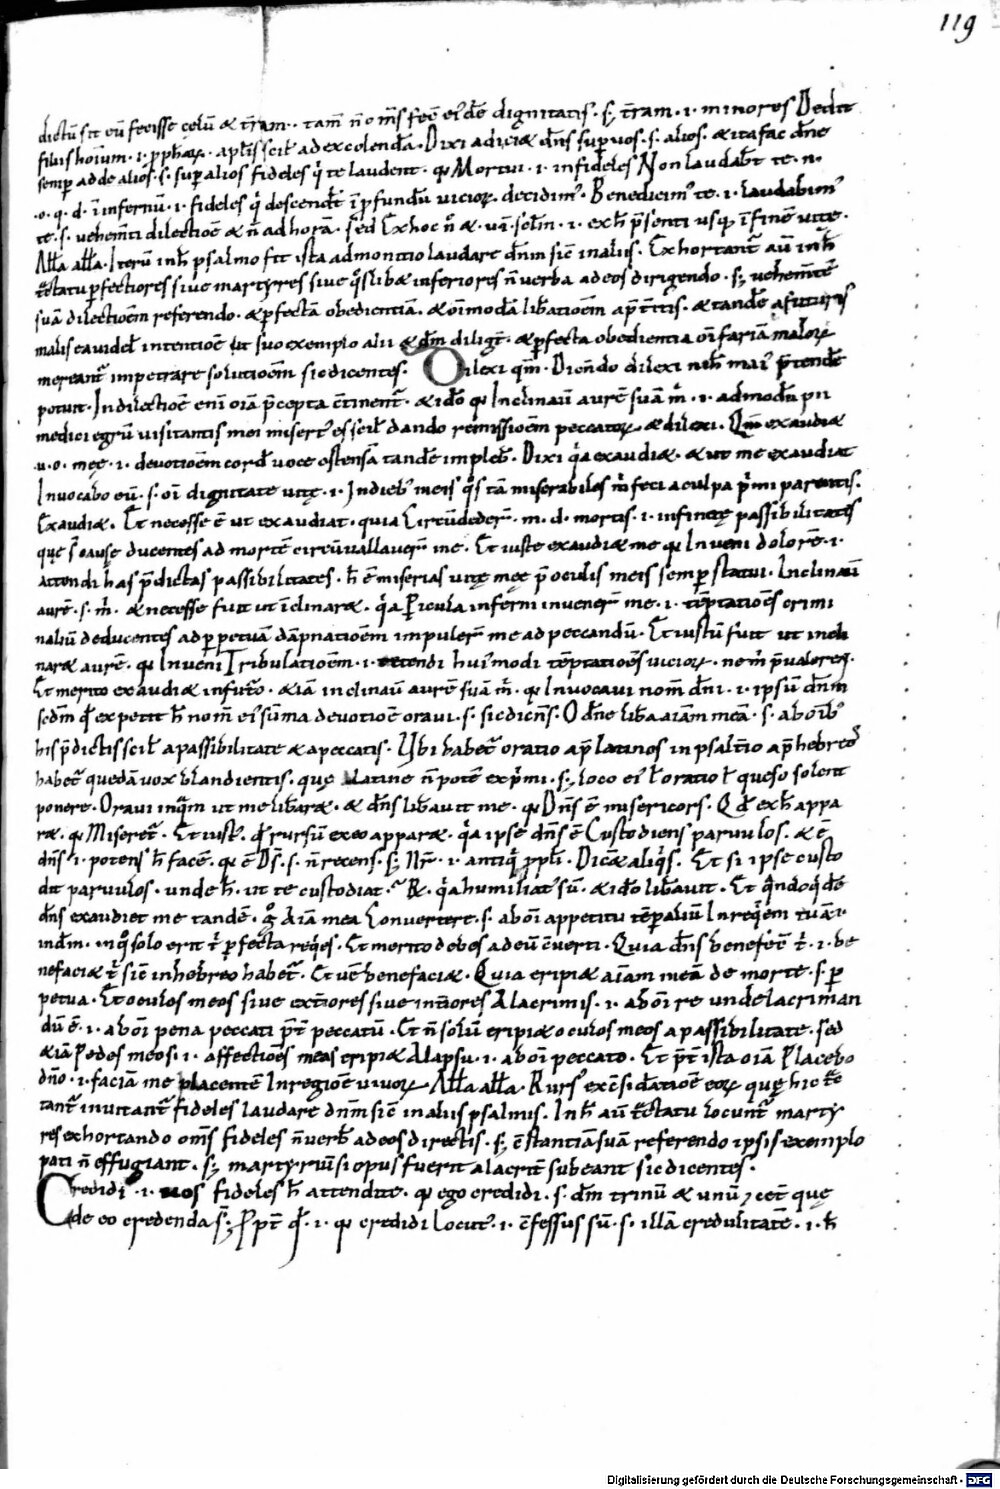 119
dictū sit eū fecisse celū & t̄ram. tam̄ n̄ om̄s fec̄ ei'dē dignitatis. sʒ t̄ram .i. minores Dedit
filiis hoīum .i. p̄ph&ar. apl̄is scil' ad excolendā. Dixi adiciæ dn̄s sup̱ uos .s. alios. & ita fac dn̄e
semp̱ adde alios .s. sup̱ alios fideles q̇ te laudent. qm̄ Mortui .i. infideles Non laudab̄t te. n.
.o. q. d. ī infernū .i. fideles q̇ descend̄t ī p̱fundū uicioꝝ decidim'. Benedicim' te .i. laudabim'
te .s. uehemēti dilectioē & n̄ ad horā. sed Ex hoc n̄c & u. ī sc̄lm .i. ex h̄ p̄senti usq; ī finē uite.
All̄a all̄a. Iterū in h̄ psalmo fit ista admonitio laudare dn̄m sic̄ in aliis. Exhortant' aū in h̄
t̄ctatu p̱fectiores siue martyres siue q̊slib& inferiores n̄ uerba ad eos dirigendo. sʒ uehem̄tē
suā dilectioēm referendo. & p̱fectā obedientiā. & oīmodā lib̄atioēm ap̄t̄tis. & tandē a futuris
malis eauidel̄ intentioē ut suo exemplo alii & dm̄ diligt̄. & p̱fecta obedientia oīfariā maloꝝ
mereant' impetrare solutioēm sic dicentes. Dilexi qm̄. Dicēdo dilexi nih̄ mai' p̄tendē
potuit. In dilectioē enī oīa p̄cepta ētinent'. & idō qm̄ Inclinauī aurē suā m̄ .i. ad modū pii
medici egrū uisitantis mei misert' es scil' dando remissioēm peccatoꝝ & dilexi. Qm̄ exaudiæ
.u.o. męę .i. deuotioēm cord̄ uoce ostensā tandē impleb'. Dixi q̇a exaudiæ. & ut me exaudiat
Inuocabo eū .s. oī dignitate uitę .i. In dieb' meis q̊s tā miserabiles m̄ feci a culpa p̄mi parentis.
Exaudiæ. Et necesse ē ut exaudiat. quia Circūdeder̄. m. d. mortis .i. infinitę passibilitates
quę s̄ cause ducentes ad mortē circūuallauer̄ me. Et iuste exaudiæ me qm̄ Inueni dolorē .i.
attendi has p̄dictas passibilitates. h̄ ē miserias uitę męę p̄ oculis meis semp̱ statui. Inclinauī
aurē .s. m̄. & necesse fuit ut īclinaræ. q̇a Picula inferni inuener̄ me .i. tēptatioēs crimi
naliū deducentes ad p̱petuā dāpnatioēm impuler̄ me ad peccandū. Et iustū fuit ut incli
naræ aurē. qm̄ Inueni Tribulatioēm .i. attendi hui'modi tēptatioēs uicioꝝ. ne m̄ p̄ualeręt.
Et merito exaudiæ in futurō. & iā inclinauī aurē suā m̄. qm̄ Inuocaui nom̄ dn̄i .i. ipsū dn̄m
sedm̄ qd̄ expetit h̄ nom̄ ei' sūma deuotioē oraui .s. sic dicn̄s. O dn̄e lib̄a aīam meā .s. ab oīb'
his p̄dictis scil' a passibilitate & a peccatis. Ubi habet' oratio ap̄ latinos in psalt̄io ap̄ hebreos
habet' quedā uox blandientis. quę latine n̄ potē exp̄mi. sʒ loco ei' l̄ oratio l̄ queso solent
ponere. Oraui inq̄m ut me lib̄aræ. & dn̄s lib̄auit me. qm̄ Dn̄s ē misericors. Qd̄ ex h̄ appa
ræ. qm̄ Miseret'. Et iust'. qd̄ rursū ex eo apparæ. q̇a ipse dn̄s ē Custodiens paruulos. & ē
dn̄s .i. potens h̄ facē. qm̄ ē Ds̄ .s. n̄ recens. sʒ Nr̄ .i. antiq̇ pp̱li. Dicat aliq̇s. Et si ipse custo
dit paruulos. unde h̄. ut te custodiat. R̄. q̇a humiliat' sū. & idō lib̄auit. Et q̄ndoq̇dē
dn̄s exaudiet me tandē. g̊ Aīa mea Conuertere .s. ab oī appetitu tēp̱aliū In req̇em tuā .i.
in dm̄. in q̊ solo erit t̄ p̱fecta req̇es. Et merito debes ad eū ēuerti. Quia dn̄s benefec̄ t̄ .i. be
nefaciæ t̄ sic̄ in hebreo habet'. Et uē benefaciæ. Quia eripiæ aīam meā de morte .s. p̱
petua. Et oculos meos siue ext̄iores siue int̄iores A lacrimis .i. ab oī re unde lacriman
dū ē .i. ab oī pena peccati p̄t̄ peccatū. Et n̄ solū eripiæ oculos meos a passibilitate. sed
& iā Pedes meos .i. affectioēs meas eripiæ A lapsu .i. ab oī peccato. Et p̄t̄ ista oīa Placebo
dn̄o .i. faciā me placentē In regioē uiuoꝝ. All̄a all̄a. Rurs' ex ēsidatioē eoꝝ quę hic t̄c
tant' inuitant' fideles laudare dn̄m sic̄ in aliis psalmis. In h̄ aū t̄ctatu locunt' marty
res exhortando om̄s fideles n̄ uerb' ad eos directis. sʒ ēstantiā suā referendo ipsis exemplo
pati n̄ effugiant. sʒ martyriū si opus fuerit alacrit̄ subeant sic dicentes.
Credidi .i. uos fideles h̄ attendite. qm̄ ego credidi .s. dm̄ trinū & unū ⁊ cet̄ quę
de eo credenda s̄ʒ Ppt̄ qd̄ .i. qm̄ credidi Locut' .i. ēfessus sū .s. illā credulitatē .i. h̄
Digitalisierung gefördert durch die Deutsche Forschungsgemeinschaft - DFG